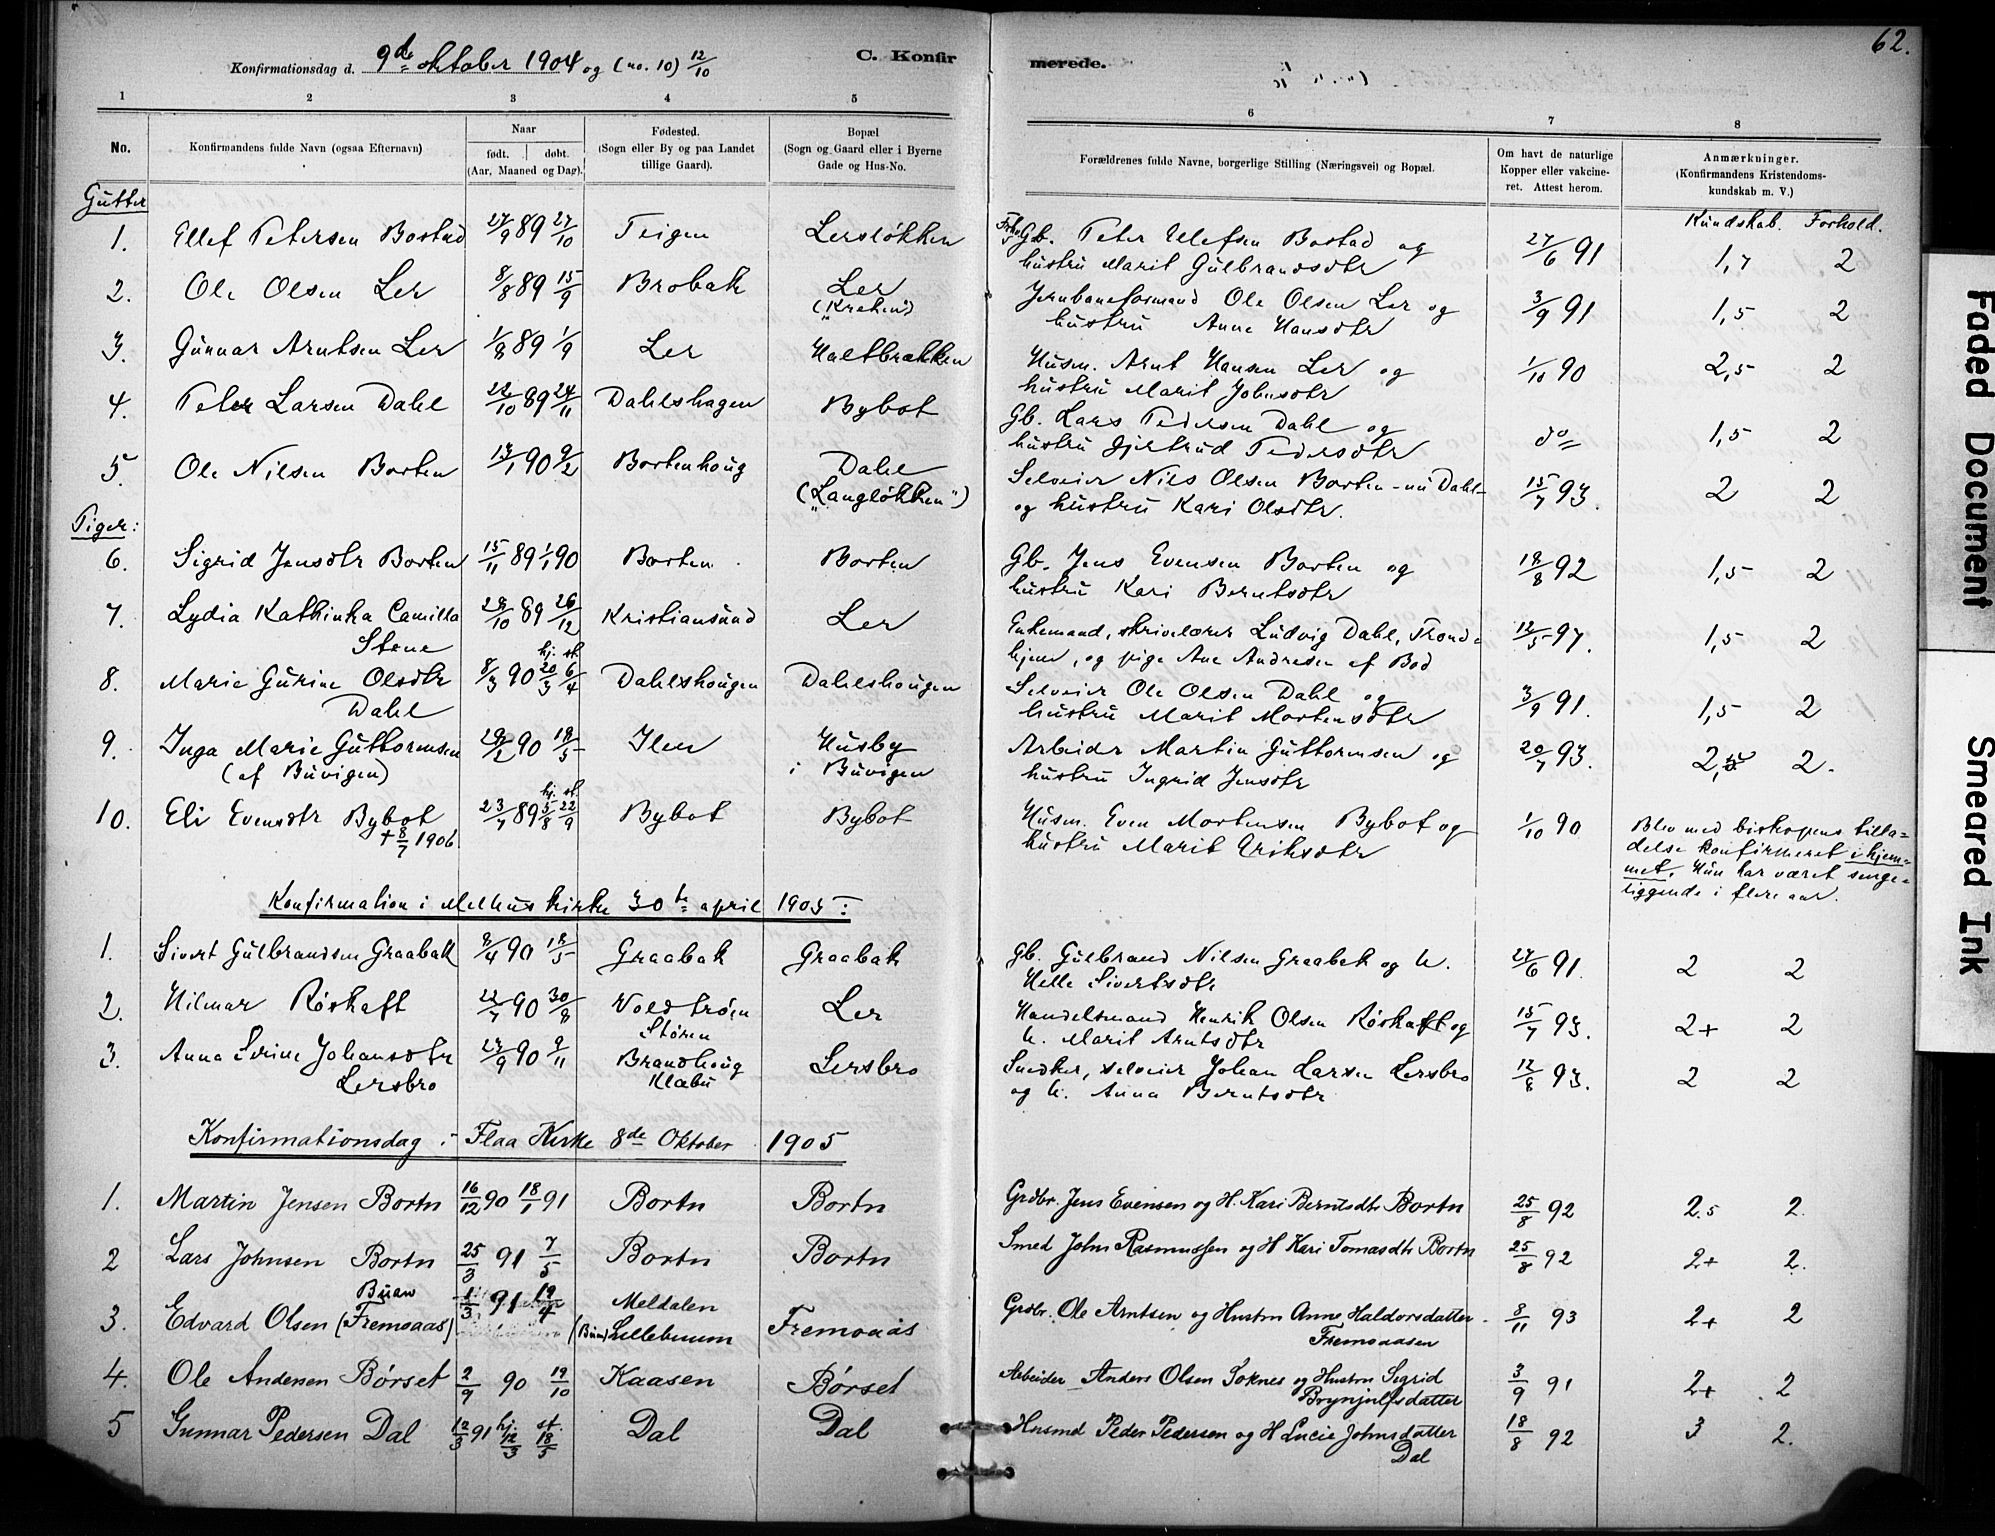 62.
Konfirmationsdag d. 9de oktober 1904 og (no. 10) 12/10
C. Konfirmerede.
1 2 3 4 5 6 7 8
No.
Konfirmandens fulde Navn (ogsaa Efternavn)
Naar
født. døbt.
(Aar, Maaned og Dag).
Fødested.
(Sogn eller By og paa Landet
tillige Gaard).
Bopæl
(Sogn og Gaard eller i Byerne
Gade og Hus-No.
Forældrenes fulde Navne, borgerlige Stilling (Næringsvei) og Bopæl.
Om havt de naturlige
Kopper eller vakcine-
ret. Attest herom.
Anmærkninger.
(Konfirmandens Kristendoms-
kundskab m. V.)
Gutter
Kundskab. Forhold.
1. Ellef Petersen Bostad 27/9 89 27/10 Teigen Lersløkken Gb. Peter Ellefsen Bostad og 27/6 91 1,7 2
hustru Marit Gulbrandsdtr
2. Ole Olsen Ler 8/8 89 15/9 Brobak Ler Jernbaneformand Ole Olsen Ler og 3/9 91 1,5 2
("Kroken") hustru Anne Hansdtr
3. Gunnar Arntsen Ler 1/8 89 1/9 Ler Haltbrækken Husm. Arnt Hansen Ler og 1/10 90 2,5 2
hustru Marit Johnsdtr
4. Peter Larsen Dahl 22/10 89 24/11 Dahlshagen Bybot Gb. Lars Pedersen Dahl og do 1,5 2
hustru Gjertrud Pedersdtr
5. Ole Nilsen Borten 13/1 90 9/2 Bortenhoug Dahl Selveier Nils Olsen Borten - nu Dahl - 15/7 93. 2 2
("Langløkken") og hustru Kari Olsdtr.
Piger:
6. Sigrid Jensdtr Borten 15/11 89 1/1 90 Borten Borten Gb. Jens Evensen Borten og 18/8 92 1,5 2
hustru Kari Berntsdtr
7. Lydia Kathinka Camilla 28/10 89 26/12 Kristiansund Ler Enkemand, skrivelærer Ludvig Dahl, Trond- 12/5 97. 1,5 2
Stene hjem, og pige Ane Andresen af Bod
8. Marie Gurine Olsdtr 8/3 90 hj. 20/3 st. 6/4 Dahlshougen Dahlshougen Selveier Ole Olsen Dahl og 3/9 91. 1,5 2
Dahl hustru Marit Mortensdtr
9. Inga Marie Guttormsen 28/2 90 18/5 Ilen Husby Arbeidr Martin Guttormsen og 20/7 93. 2,5 2.
(af Buvigen) i Buvigen hustru Ingrid Jensdtr
10. Eli Evensdtr Bybot 23/7 89 hj. 5/8 st. 22/9 Bybot Bybot Husm. Even Mortensen Bybot og 1/10 90 Blev med biskopens tilla-
+ 8/7 1906 hustru Marit Eriksdtr delse konfirmeret i hjem-
met. Hun har været senge-
liggende i flere aar.
Konfirmation i Melhus kirke 30te april 1905:
1. Sivert Gulbrandsen Graabak 8/4 90 18/5 Graabak Graabak Gb. Gulbrand Nilsen Graabak og h. 27/6 91. 2 2
Helle Sivertsdtr
2. Hilmar Røskaft 22/7 90 30/8 Voldtrøen Ler Handelsmand Henrik Olsen Røskaft og 15/7 93. 2+ 2
Støren h. Marit Arntsdtr
3. Anna Serine Johansdtr 23/9 90 9/11 Brandhoug Lersbro Snedker, selveier Johan Larsen Lersbro 12/8 93. 2 2
Lersbro Klæbu og h. Anna Berntsdtr
Konfirmationsdag i Flaa Kirke 8de Oktober 1905
1. Martin Jensen Bortn 16/12 90 18/1 91 Bortn Bortn Grdbr. Jens Evensen og H. Kari Berntsdtr Bortn 25/8 92 2.5 2.
2 Lars Johnsen Bortn 25/3 91 7/5 Bortn Bortn Smed John Rasmussen og H Kari Tomasdtr Bortn 25/8 92 2+ 2.
Buan
3. Edvard Olsen (Fremoaas) 1/3 91 19/4 Meldalen Fremoaas Grdbr. Ole Arntsen og Hustru Anne Haldorsdatter 8/11 93 2+ 2
(Buan) Lillebuum Fremoaasen
4. Ole Andersen Børset 2/9 90 19/10 Kaasen Børset Arbeider Anders Olsen Soknes og Hustru Sigrid 3/9 91 2+ 2
Brynjulfsdatter
5 Gunnar Pedersen Dal 12/3 91 hj. 12/3 st. 18/5 Dal Dal Husmd Peder Pedersen og H Lucie Johnsdatter 18/8 92 3 2.
Dal
Faded Document
Smeared Ink